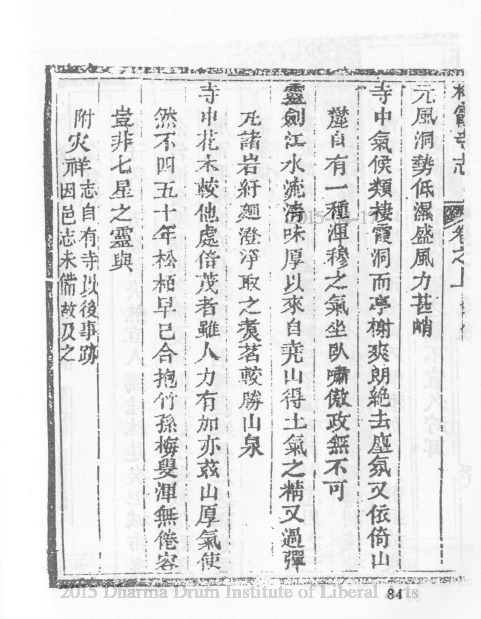 棲霞寺志 卷之上
元風洞勢低濕盛風力甚峭
寺中氣候類棲霞洞而亭榭爽朗絶去塵氛又依倚山
麓自有一種渾穆之氣坐臥嘯傲政無不可
靈劍江水流清味厚以來自堯山得土氣之精又過彈
丸諸岩紆𢌞澄淨取之煑茗較勝山泉
寺中花木較他處倍茂者雖人力有加亦玆山厚氣使
然不四五十年松栢早已合抱竹孫梅叟渾無倦容
豈非七星之靈與
附灾祥志自有寺以後事跡
因邑志未備故及之
84
2015 Dharma Drum Institute of Liberal Arts